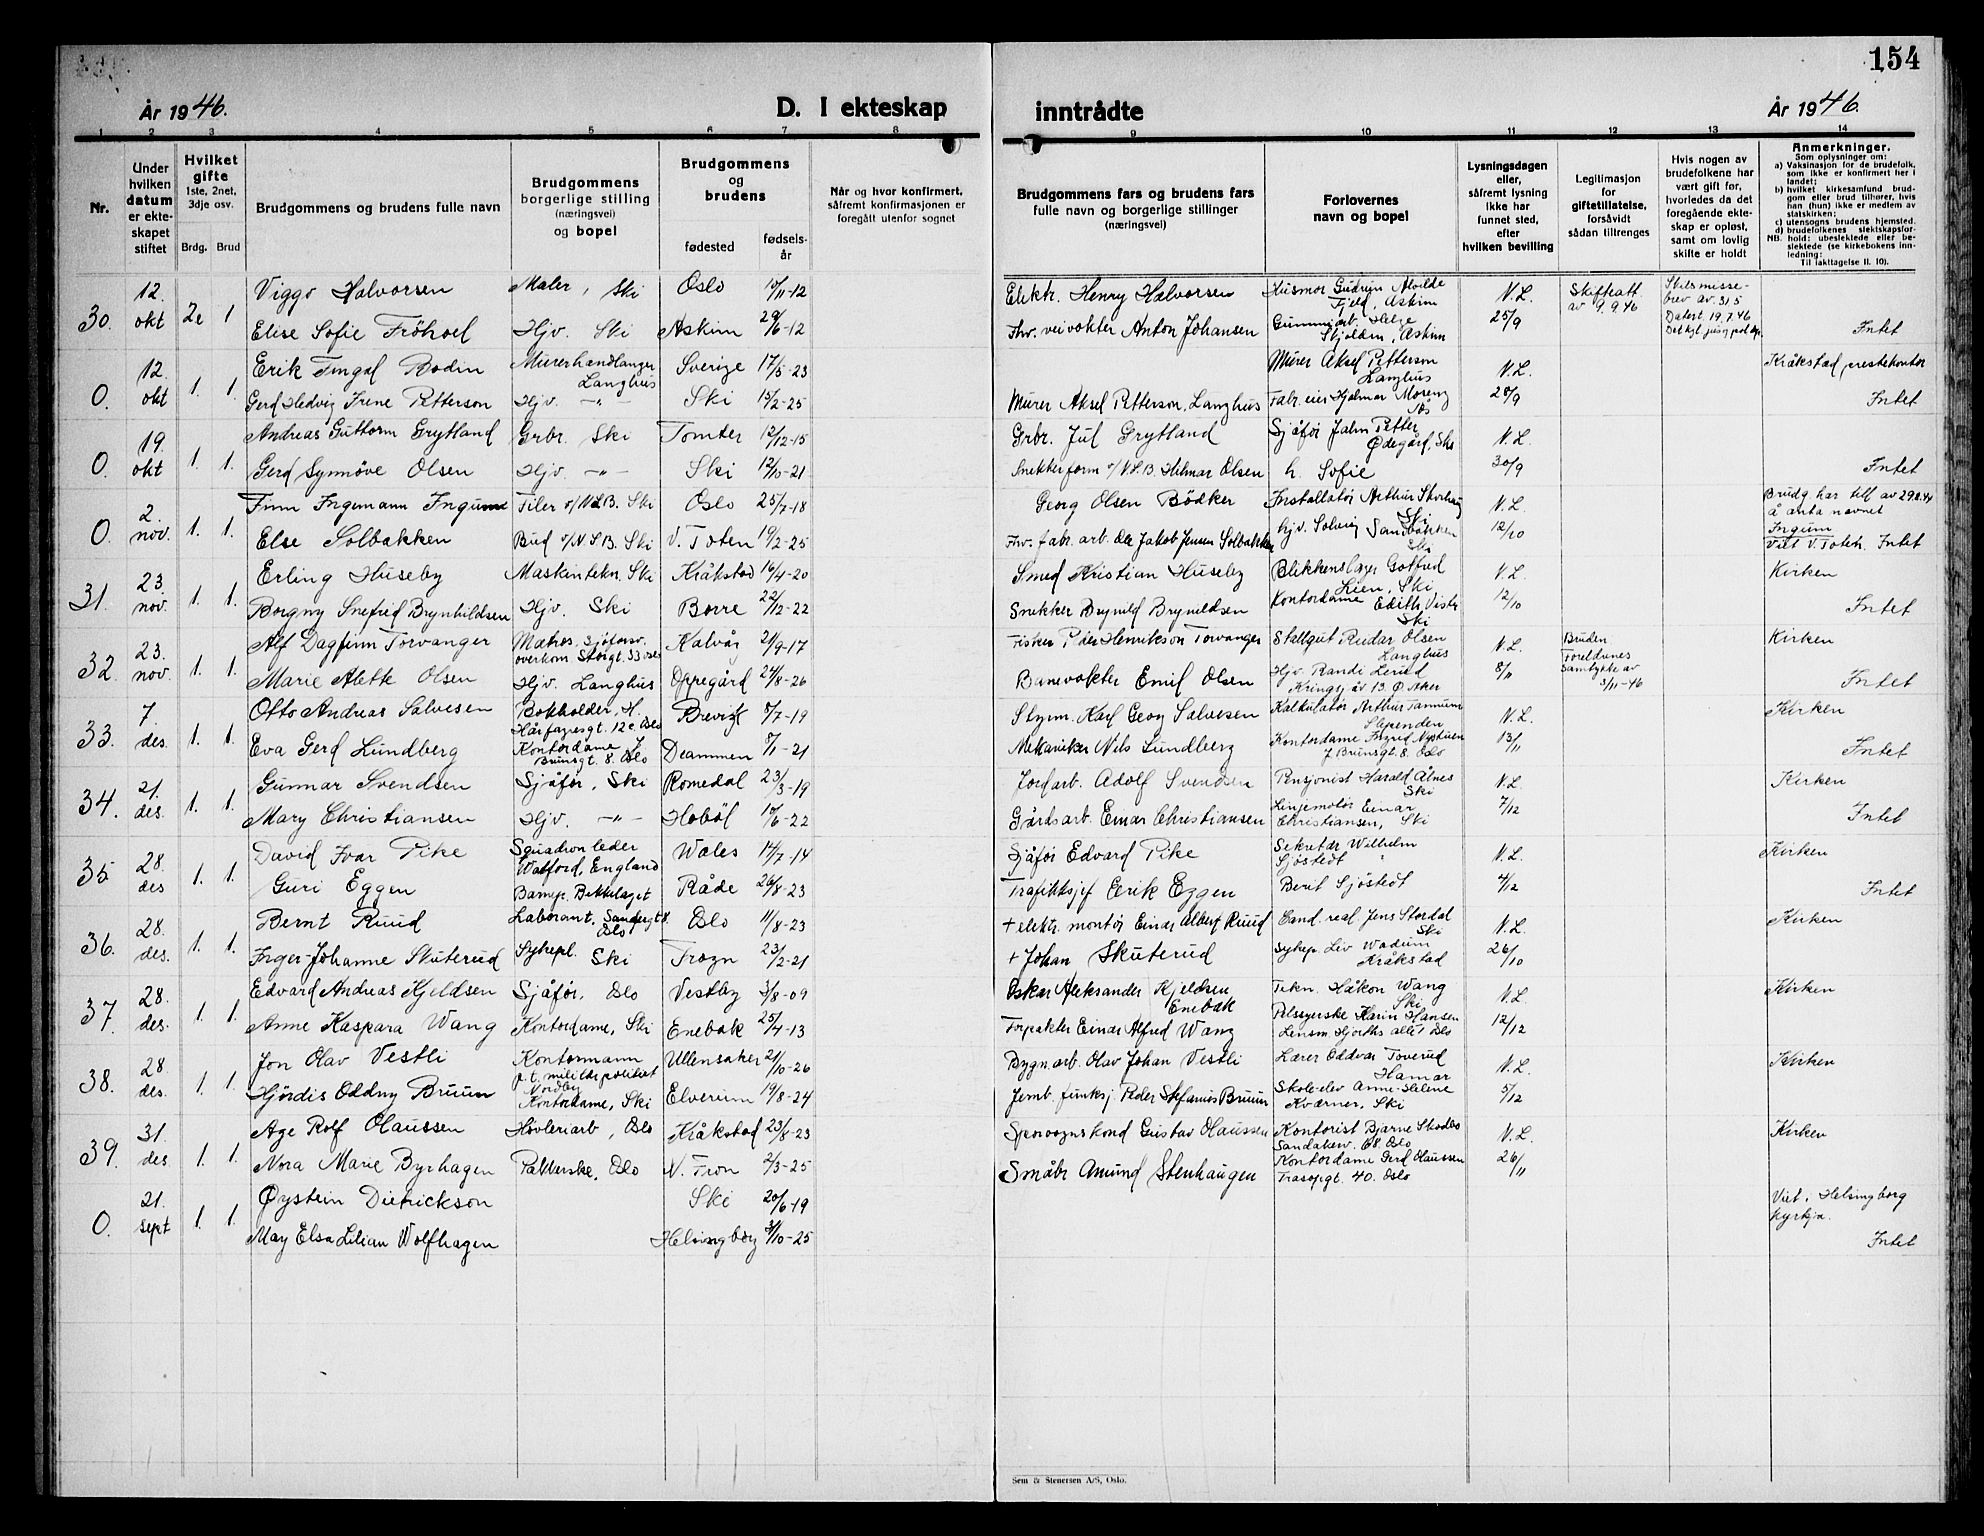 154
År 1946.
D. I ekteskap inntrådte
År 1946.
1 2 3 4 5 6 7 8 9 10 11 12 13 14
Nr.
Under hvilken datum er ekteskapet stiftet
Hvilket gifte 1ste, 2net, 3dje osv.
Brdg. Brud
Brudgommens og brudens fulle navn
Brudgommens borgerlige stilling (næringsvei) og bopel
Brudgommens og brudens
fødested
fødselsår
Når og hvor konfirmert, såfremt konfirmasjonen er foregått utenfor sognet
Brudgommens fars og brudens fars fulle navn og borgerlige stillinger (næringsvei)
Forlovernes navn og bopel
Lysningsdagen eller, såfremt lysning ikke har funnet sted, efter hvilken bevilling
Legitimasjon for giftetillatelse, forsåvidt sådan tiltrenges
Hvis nogen av brudefolkene har vært gift før, hvorledes da det foregående ekteskap er opløst, samt om lovlig skifte er holdt
Anmerkninger.
Som oplysninger om:
a) Vaksinasjon for de brudefolk, som ikke er konfirmert her i landet;
b) hvilket kirkesamfund brudgom eller brud tilhører, hvis han (hun) ikke er medlem av statskirken;
c) utensogns brudens hjemsted.
d) brudefolkenes slektskapsforhold: ubeslektede eller beslektede (se kirkebokens innledning:
NB.
Til iakttagelse II. 10).
30. 12. okt 2e 1
Viggo Halvorsen Maler, Ski Oslo 10/11-12 Elektr. Henry Halvorsen Husmor Gudrun Alvilde Fjeld, Askim N.L. 25/9 Skifteatt. av 9.9.46 Skilsmissebrev av 31/5 Datert 19.7.46
Elise Sofie Fröhoel Hjv. Ski Askim 29/6-12 Fhv. veivokter Anton Johansen Gummiarb. Helge Skjolden, Askim Intet
0. 12. okt 1. 1.
Erik Fingal Bodin Murerhandlanger Langhus Sverige 17/5-23 Murer Aksel Petterson Langhus N.L. 28/9 Kråkstad prestekontor
Gerd Hedvig Irene Petterson Hjv. -"- Ski 15/2-25 Murer Aksel Petterson, Langhus Fabr.eier Hjalmar Moreng Ås Intet
0. 19. okt 1. 1.
Andreas Guttorm Grytland Grbr. Ski Tomter 12/12-15 Grbr. Jul Grytland Sjåfør John Petter Ødegård, Ski N.L. 30/9
Gerd Synnöve Olsen Hjv. -"- Ski 12/10-21 Snekkerform v/N.S.B. Hilmar Olsen h. Sofie Intet
0. 2. nov. 1. 1.
Finn Ingemann Ingum Filer v/N.S.B. Ski Oslo 25/7-18 Georg Olsen Bödker Installatør Arthur Skorhaug Ski N.L. 12/10 Brudg. har till av 29.8.41 å anta navnet Ingum
Else Solbakken Bud v/N.S.B. Ski V. Toten 19/2-25 Fhv. fabr. arb. Ole Jakob Jensen Solbakken hjv. Solveig Sandbakken Ski Viet V. Toten. Intet
31. 23. nov. 1. 1.
Erling Huseby Maskintekn. Ski Kråkstad 16/4-20 Smed Kristian Huseby Blikkenslager Gotfred Lien, Ski N.L. 12/10 Kirken
Borgny Snefrid Brynhildsen Hjv. Ski Borre 22/12-22 Snekker Brynild Brynildsen Kontordame Edith Vister Ski Intet
32. 23. nov. 1. 1.
Alf Dagfinn Torvanger Matros. Sjøforsv. overkom. Storgt. 33 Oslo Kalvåg 21/9-17 Fisker Peder Henrikson Torvanger Stallgut Reidar Olsen Langhus N.L. 8/11 Bruden Foreldrenes samtykke av 3/11-46 Kirken
Marie Alette Olsen Hjv. Langhus Oppegård 24/8-26 Banevokter Emil Olsen Hjv. Randi Lerud Kringsj. åv 13. Ø. Aker Intet
33. 7. des. 1. 1.
Otto Andreas Salvesen Bokholder, H. Hårfagresgt. 12c. Oslo Brevik 8/7-19 Styrm. Karl Georg Salvesen Kalkulatør Arthur Tannum Slependen N.L. 13/11 Kirken
Eva Gerd Lundberg Kontordame J. Brunsgt. 8. Oslo Drammen 8/1-21 Mekaniker Nils Lundberg Kontordame Ingrid Nystuen J. Brunsgt. 8. Oslo Intet
34. 21. des. 1. 1.
Gunnar Svendsen Sjåfør, Ski Romedal 23/3-19 Jordarb. Adolf Svendsen Pensjonist Harald Ålnes Ski N.L. 7/12 Kirken
Mary Christiansen Hjv. -"- Hoböl 10/6-22 Gårdsarb. Einar Christiansen Linjemotør Einar Christiansen, Ski Intet
35 28. des 1. 1.
David Ivar Pike Squadronleder Watford, England Wales 14/7-14 Sjåfør Edvard Pike Sekretær Wilhelm Sjöstedt N.L. 4/12 Kirken
Guri Eggen Bamyr. Bekkelaget Råde 26/8-23 Trafikksjef Eerik Eggen Berit Sjöstedt Intet
36. 28. des. 1. 1.
Bernt Ruud Laborant, Sandergt 8. Oslo Oslo 11/8-23 + elektr. montör Einar Albert Ruud Cand. real. Jens Stordal Ski N.L. 26/10 Kirken
Inger-Johanne Skuterud Sykepl. Ski Frogn 23/2-21 + Johan Skuterud Sykepl. Liv Wadum Kråkstad
37. 28. des. 1. 1.
Edvard Andreas Kjeldsen Sjåför, Oslo Vestby 3/8-09 Oskar Aleksander Kjeldsen Enebak Tekn. Håkon Wang Ski N.L. 12/12 Kirken
Anne Kaspara Wang Kontordame, Ski Enebak 25/4-13 Forpakter Einar Alfred Wang Pelssyerske Karin Hansen Lensm. Hjorths allé 1 Oslo
38. 28. des. 1. 1.
Jon Olav Vestli Kontormann p.t. militærpolitiet Nordby Ullensaker 21/10-26 Bygn.arb. Olav Johan Vestli Lærer Oddvar Toverud Hamar N.L. 5/12 Kirken
Hjördis Oddny Bruun Kontordame, Ski Elverum 19/8-24 Jernb. funksj. Peder Stefanus Bruun Skole-elev Anne-Helene Kværner, Ski
39. 31. des. 1. 1.
Age Rolf Olaussen Høvleriarb, Oslo Kråkstad 23/8-23 Sporvognskond Gustav Olaussen Kontorist Bjarne Skodbo Sandakerv. 68. Oslo N.L. 26/11 Kirken
Nora Marie Byrhagen Pakkerske, Oslo N. Fron 2/3-25 Småbr Amund Stenhaugen Kontordame Gerd Olaussen Trasopgt. 40. Oslo
0. 21. sept 1. 1.
Øystein Dietrickson Ski 20/6-19 Viet i Helsingborg kyrkja.
May Elsa Lilian Wolfhagen Helsingborg 3/10-25 Intet
Sem & Stenersen A/S, Oslo.